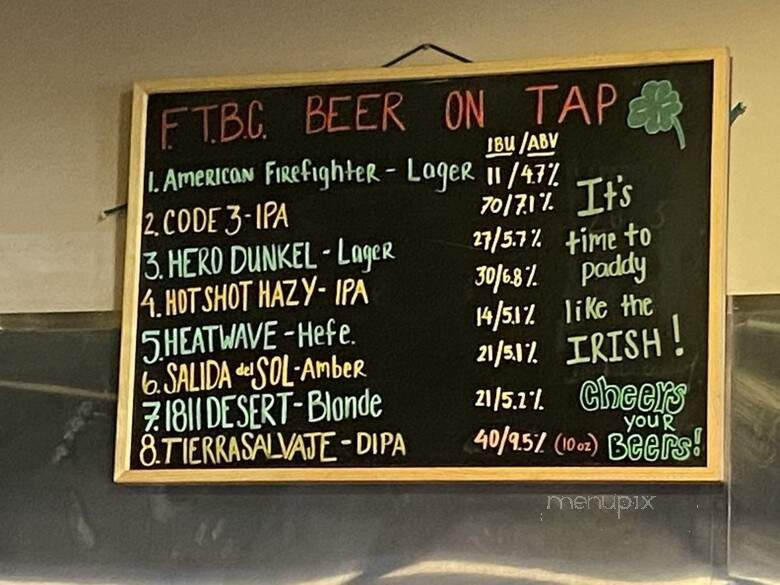 F.T.B.C. BEER ON TAP
IBU/ABV
1. AMERICAN FIREFIGHTER - Lager 11/4.7%
2. CODE 3 - IPA 70/7.1%
3. HERO DUNKEL - Lager 27/5.7%
4. HOT SHOT HAZY - IPA 30/6.8%
5. HEATWAVE - Hefe. 14/5.1%
6. SALIDA del SOL - Amber 21/5.1%
7. 1811 DESERT - Blonde 21/5.2%
8. TIERRASALVAJE - DIPA 40/9.5% (10oz)
It's
time to
paddy
like the
IRISH!
Cheers
YOUR
Beers!
menupix